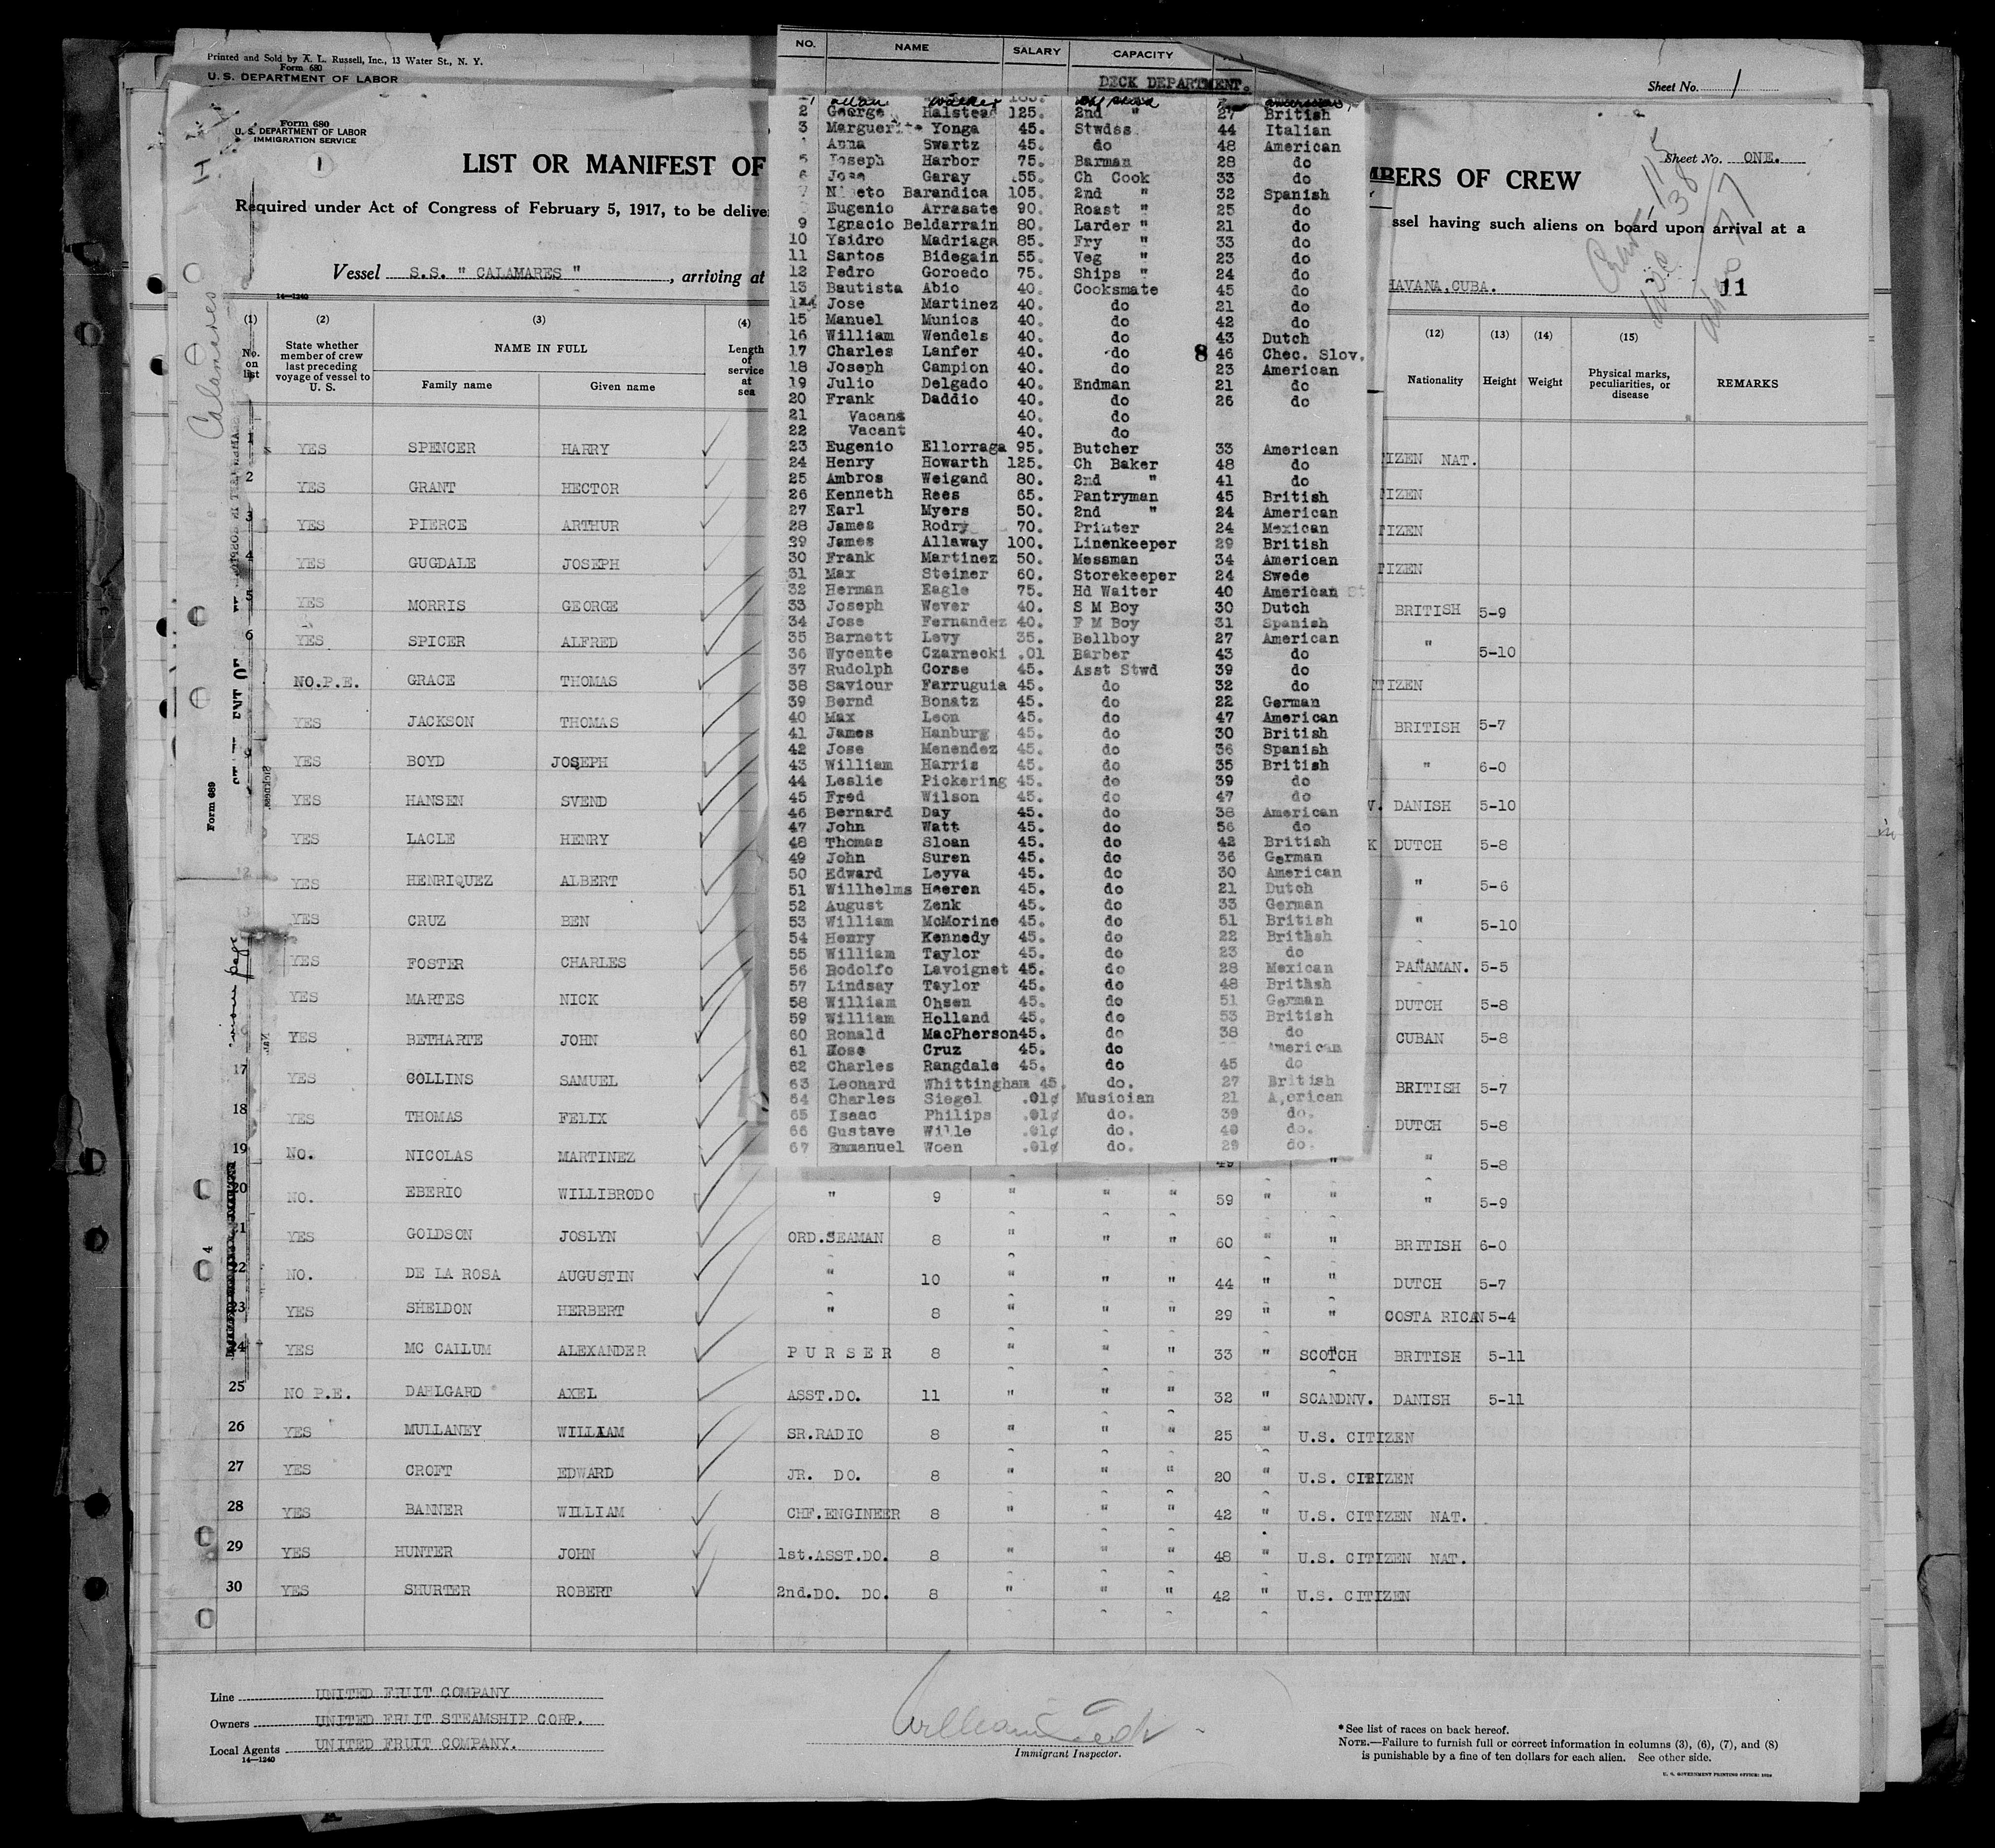 Printed and Sold by A. L. Russell, Inc., 13 Water St., N. Y.
Form 680
U. S. DEPARTMENT OF LABOR
Sheet No. 1
Form 680
U. S. DEPARTMENT OF LABOR
IMMIGRATION SERVICE
1
LIST OR MANIFEST OF
MBERS OF CREW
Sheet No. ONE.
Required under Act of Congress of February 5, 1917, to be delive
ssel having such aliens on board upon arrival at a
Vessel S.S. " CALAMARES ", arriving at
HAVANA,CUBA.
11
14—1240
Calamares
(1) (2) (3) (4) (12) (13) (14) (15)
No. on list
State whether member of crew last preceding voyage of vessel to U. S.
NAME IN FULL
Family name Given name
Length of service at sea
Nationality Height Weight Physical marks, peculiarities, or disease REMARKS
NO. NAME SALARY CAPACITY
DECK DEPARTMENT.
Allan Walker
2 George Halstead 125. 2nd " 27 British
3 Marguerite Yonga 45. Stwdss 44 Italian
Anna Swartz 45. do 48 American
5 Joseph Harbor 75. Barman 28 do
6 Jose Garay 155. Ch Cook 33 do
7 Niceto Barandica 105. 2nd " 32 Spanish
Eugenio Arrasate 90. Roast " 25 do
9 Ignacio Beldarrain 80. Larder " 21 do
10 Ysidro Madriaga 85. Fry " 33 do
11 Santos Bidegain 55. Veg " 23 do
12 Pedro Goroedo 75. Ships " 24 do
13 Bautista Abio 40. Cooksmate 45 do
14 Jose Martinez 40. do 21 do
15 Manuel Munios 40. do 42 do
16 William Wendels 40. do 43 Dutch
17 Charles Lanfer 40. do 8 46 Chec. Slov.
18 Joseph Campion 40. do 23 American
19 Julio Delgado 40. Endman 21 do
20 Frank Daddio 40. do 26 do
21 Vacant 40. do
22 Vacant 40. do
23 Eugenio Ellorraga 95. Butcher 33 American
24 Henry Howarth 125. Ch Baker 48 do
25 Ambros Weigand 80. 2nd " 41 do
26 Kenneth Rees 65. Pantryman 45 British
27 Earl Myers 50. 2nd " 24 American
28 James Rodry 70. Printer 24 Mexican
29 James Allaway 100. Linenkeeper 29 British
30 Frank Martinez 50. Messman 34 American
31 Max Steiner 60. Storekeeper 24 Swede
32 Herman Eagle 75. Hd Waiter 40 American
33 Joseph Wever 40. S M Boy 30 Dutch
34 Jose Fernandez 40. F M Boy 31 Spanish
35 Barnett Levy 35. Bellboy 27 American
36 Wycente Czarnecki .01 Barber 43 do
37 Rudolph Gorse 45. Asst Stwd 39 do
38 Saviour Farruguia 45. do 32 do
39 Bernd Bonatz 45. do 22 German
40 Max Leon 45. do 47 American
41 James Hanburg 45. do 30 British
42 Jose Menendez 45. do 36 Spanish
43 William Harris 45. do 35 British
44 Leslie Pickering 45. do 39 do
45 Fred Wilson 45. do 47 do
46 Bernard Day 45. do 38 American
47 John Watt 45. do 56 do
48 Thomas Sloan 45. do 42 British
49 John Suren 45. do 36 German
50 Edward Leyva 45. do 30 American
51 Willhelms Heeren 45. do 21 Dutch
52 August Zenk 45. do 33 German
53 William McMorine 45. do 51 British
54 Henry Kennedy 45. do 22 British
55 William Taylor 45. do 23 do
56 Rodolfo Lavoignet 45. do 28 Mexican
57 Lindsay Taylor 45. do 48 British
58 William Ohsen 45. do 51 German
59 William Holland 45. do 53 British
60 Ronald MacPherson 45. do 38 do
61 Hose Cruz 45. do American
62 Charles Rangdale 45. do 45 do
63 Leonard Whittingham 45. do. 27 British
64 Charles Siegel .01¢ Musician 21 American
65 Isaac Philips .01¢ do. 39 do.
66 Gustave Wille .01¢ do. 40 do.
67 Emmanuel Woen .01¢ do. 29 do.
1 YES SPENCER HARRY IZEN NAT.
2 YES GRANT HECTOR IZEN
3 YES PIERCE ARTHUR TIZEN
4 YES GUGDALE JOSEPH TIZEN
5 YES MORRIS GEORGE BRITISH 5-9
6 YES SPICER ALFRED " 5-10
NO.P.E. GRACE THOMAS TIZEN
YES JACKSON THOMAS BRITISH 5-7
YES BOYD JOSEPH " 6-0
YES HANSEN SVEND V. DANISH 5-10
YES LACLE HENRY K DUTCH 5-8
12 YES HENRIQUEZ ALBERT " 5-6
YES CRUZ BEN " 5-10
YES FOSTER CHARLES PANAMAN. 5-5
YES MARTES NICK DUTCH 5-8
YES BETHARTE JOHN CUBAN 5-8
17 YES COLLINS SAMUEL BRITISH 5-7
18 YES THOMAS FELIX DUTCH 5-8
19 NO. NICOLAS MARTINEZ 49 " " 5-8
20 NO. EBERIO WILLIBRODO " 9 " " " 59 " " " 5-9
21 YES GOLDSON JOSLYN ORD.SEAMAN 8 " " " 60 " " BRITISH 6-0
22 NO. DE LA ROSA AUGUSTIN " 10 " " " 44 " " DUTCH 5-7
23 YES SHELDON HERBERT " 8 " " " 29 " " COSTA RICAN 5-4
24 YES MC CALLUM ALEXANDER PURSER 8 " " " 33 " SCOTCH BRITISH 5-11
25 NO P.E. DAHLGARD AXEL ASST.DO. 11 " " " 32 " SCANDNV. DANISH 5-11
26 YES MULLANEY WILLIAM SR.RADIO 8 " " " 25 " U.S. CITIZEN
27 YES CROFT EDWARD JR. DO. 8 " " " 20 " U.S. CITIZEN
28 YES BANNER WILLIAM CHF.ENGINEER 8 " " " 42 " U.S. CITIZEN NAT.
29 YES HUNTER JOHN 1st.ASST.DO. 8 " " " 48 " U.S. CITIZEN NAT.
30 YES SHURTER ROBERT 2nd.DO. DO. 8 " " " 42 " U.S. CITIZEN
Form 689
Sickness.
4
Line UNITED FRUIT COMPANY
Owners UNITED FRUIT STEAMSHIP CORP.
Local Agents UNITED FRUIT COMPANY.
14—1240
Immigrant Inspector.
*See list of races on back hereof.
NOTE.—Failure to furnish full or correct information in columns (3), (6), (7), and (8)
is punishable by a fine of ten dollars for each alien. See other side.
U. S. GOVERNMENT PRINTING OFFICE: 1929